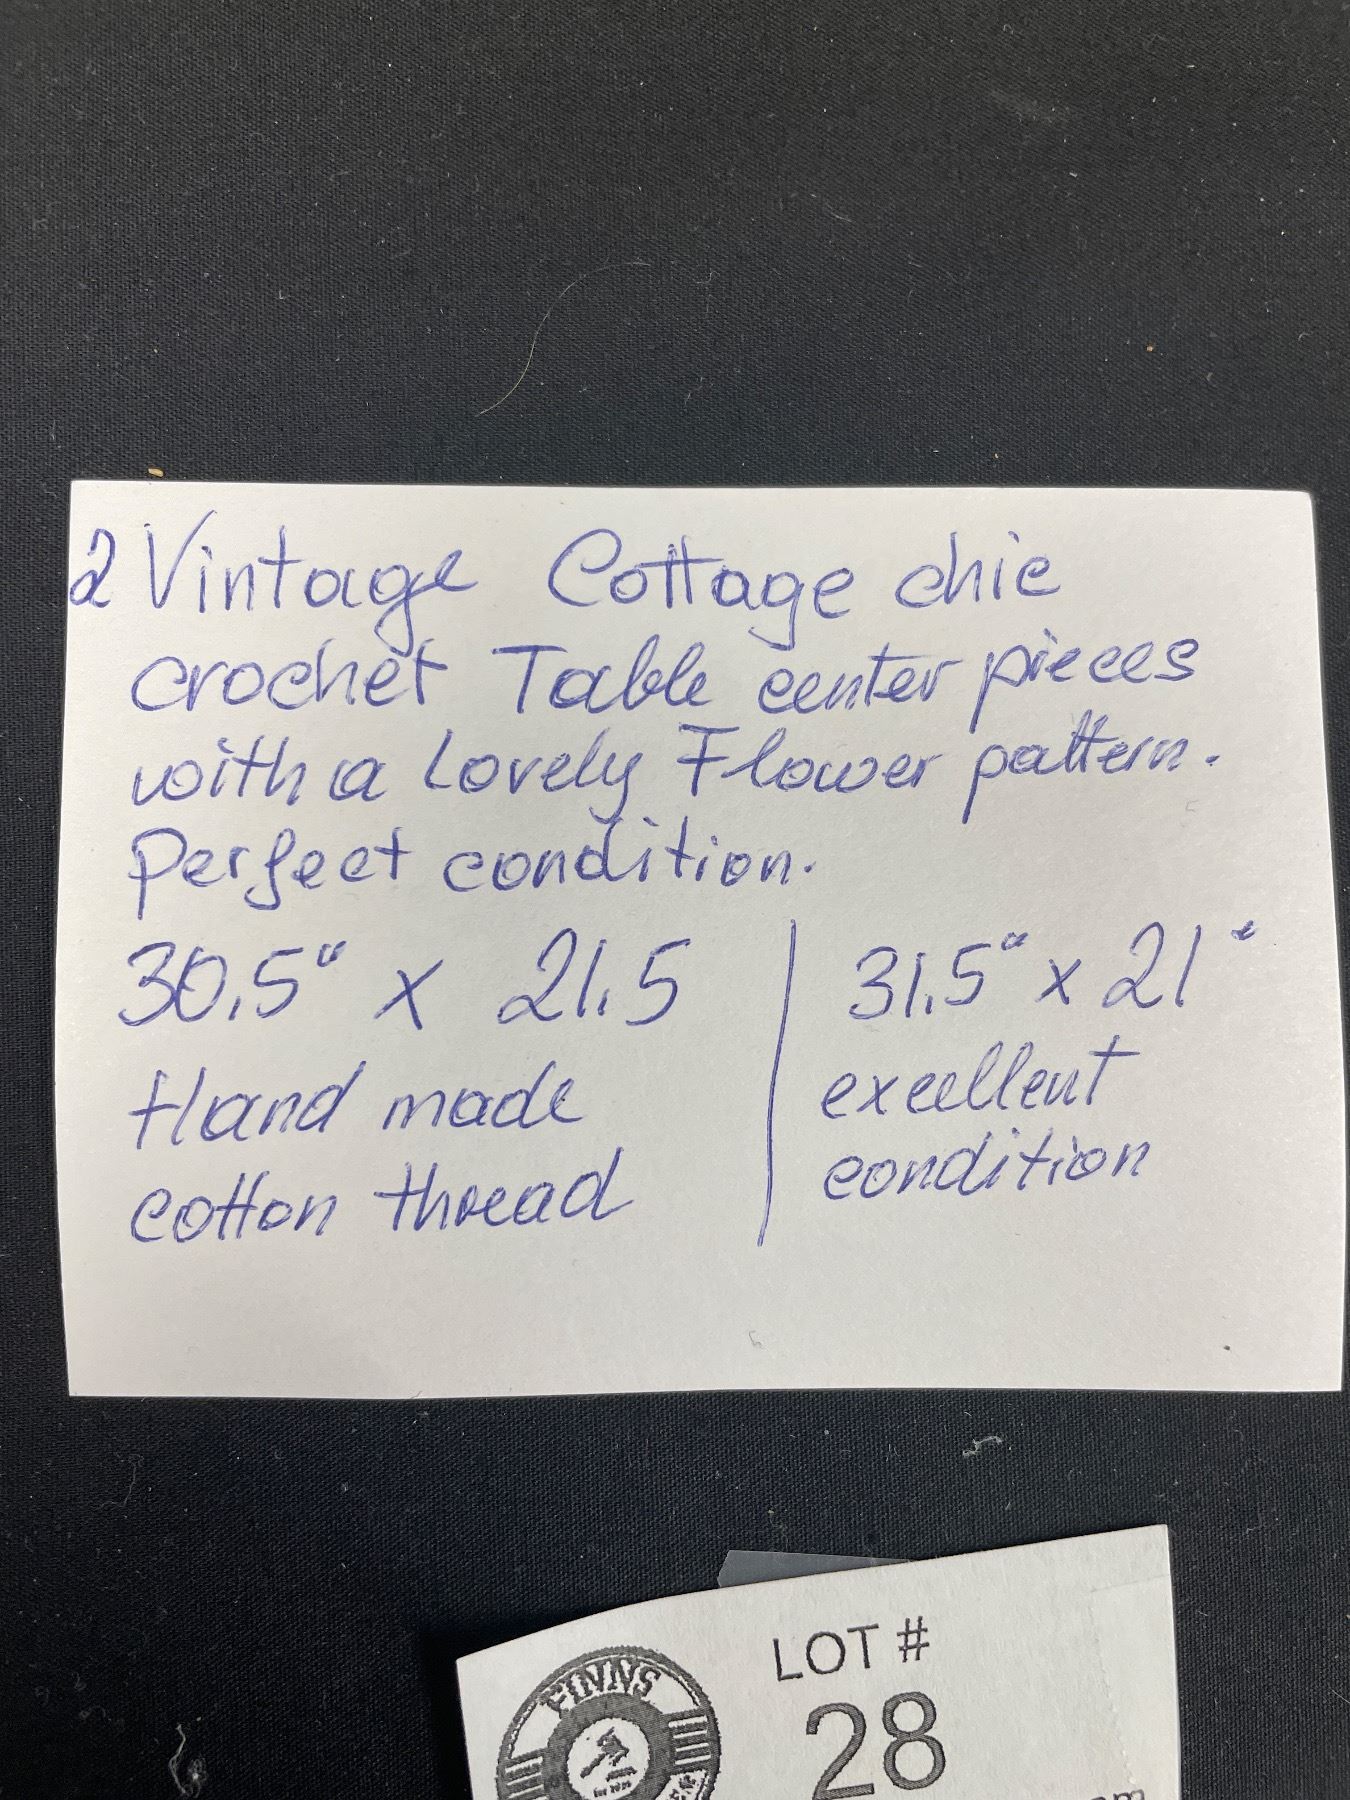 2 Vintage Cottage chic
crochet Table center pieces
with a Lovely Flower pattern.
Perfect condition.
30.5" x 21.5
Hand made
cotton thread
31.5" x 21"
excellent
condition
FINNS
LOT #
28